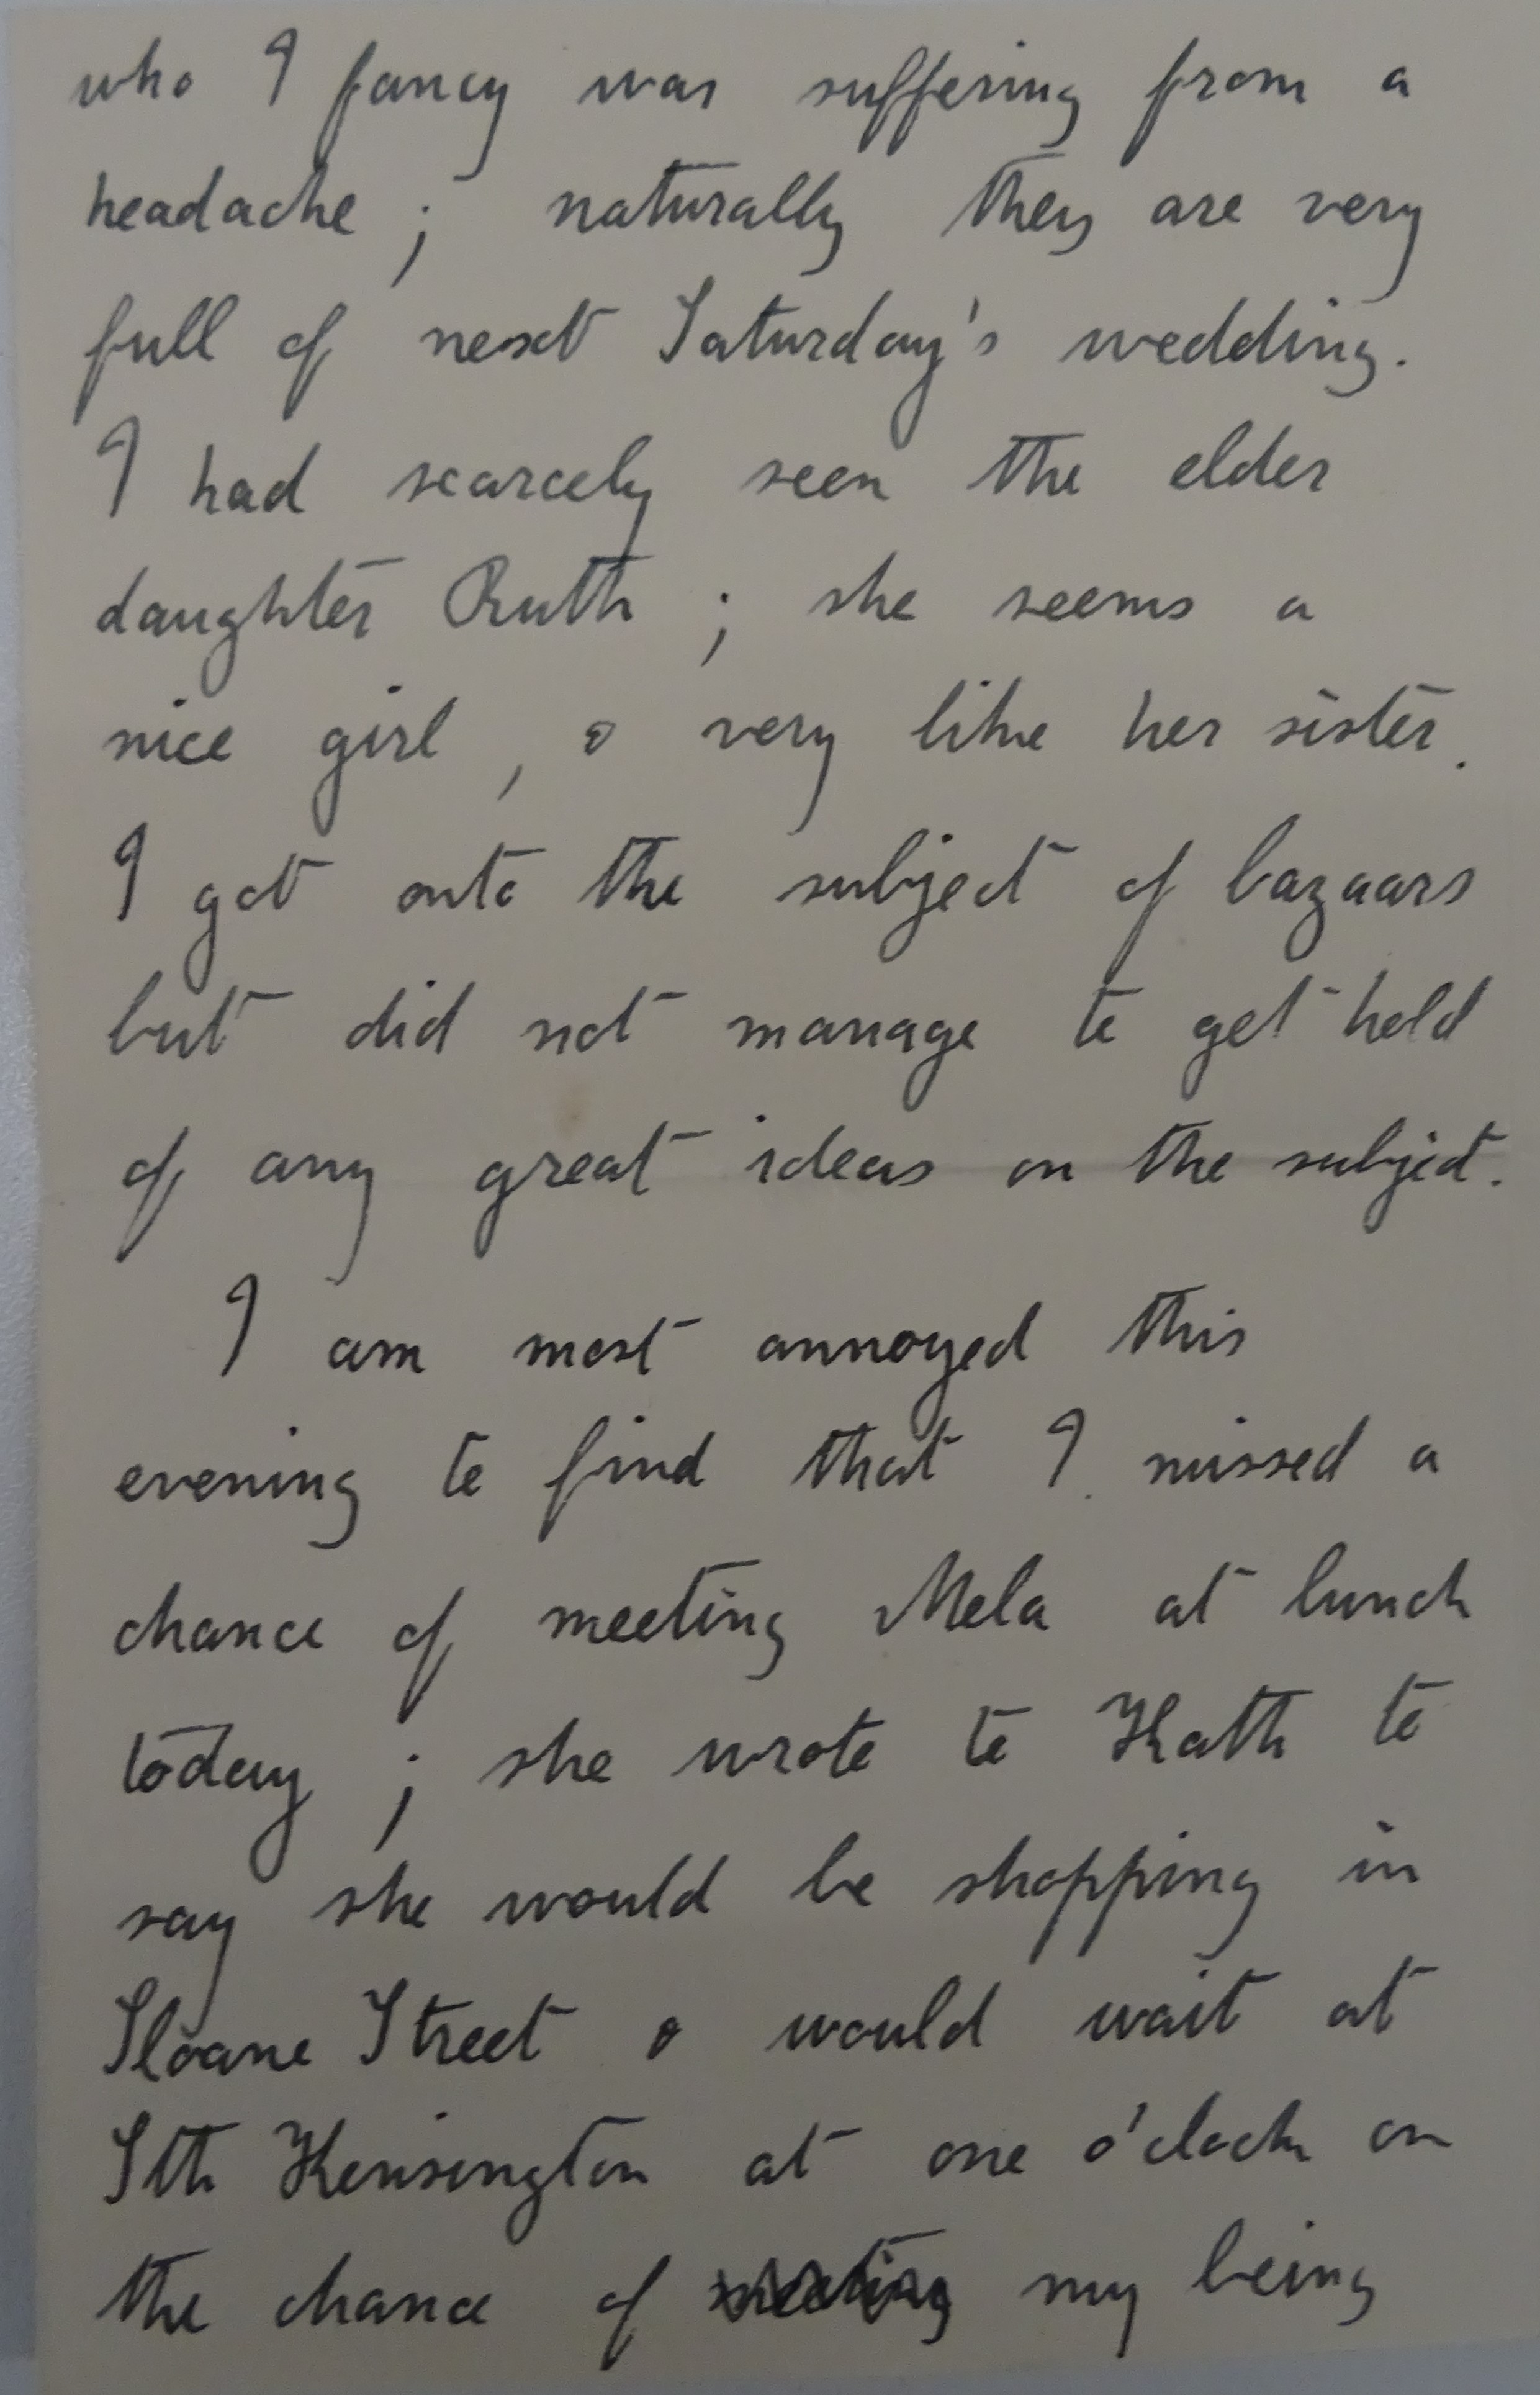 who I fancy was suffering from a
headache ; naturally they are very
full of next Saturday's wedding.
I had scarcely seen the elder
daughter Ruth ; she seems a
nice girl , & very like her sister.
I got onto the subject of bazaars
but did not manage to get hold
of any great ideas on the subject.
I am most annoyed this
evening to find that I missed a
chance of meeting Mela at lunch
today ; she wrote to Kath to
say she would be shopping in
Sloane Street & would wait at
Sth Kensington at one o'clock on
the chance of meeting my being